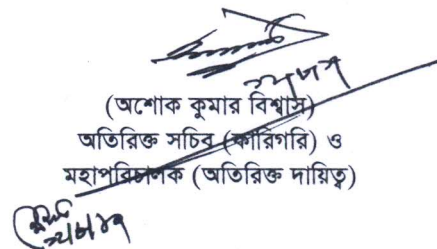 (অশোক কুমার বিশ্বাস)
অতিরিক্ত সচিব (কারিগরি) ও
মহাপরিচালক (অতিরিক্ত দায়িত্ব)